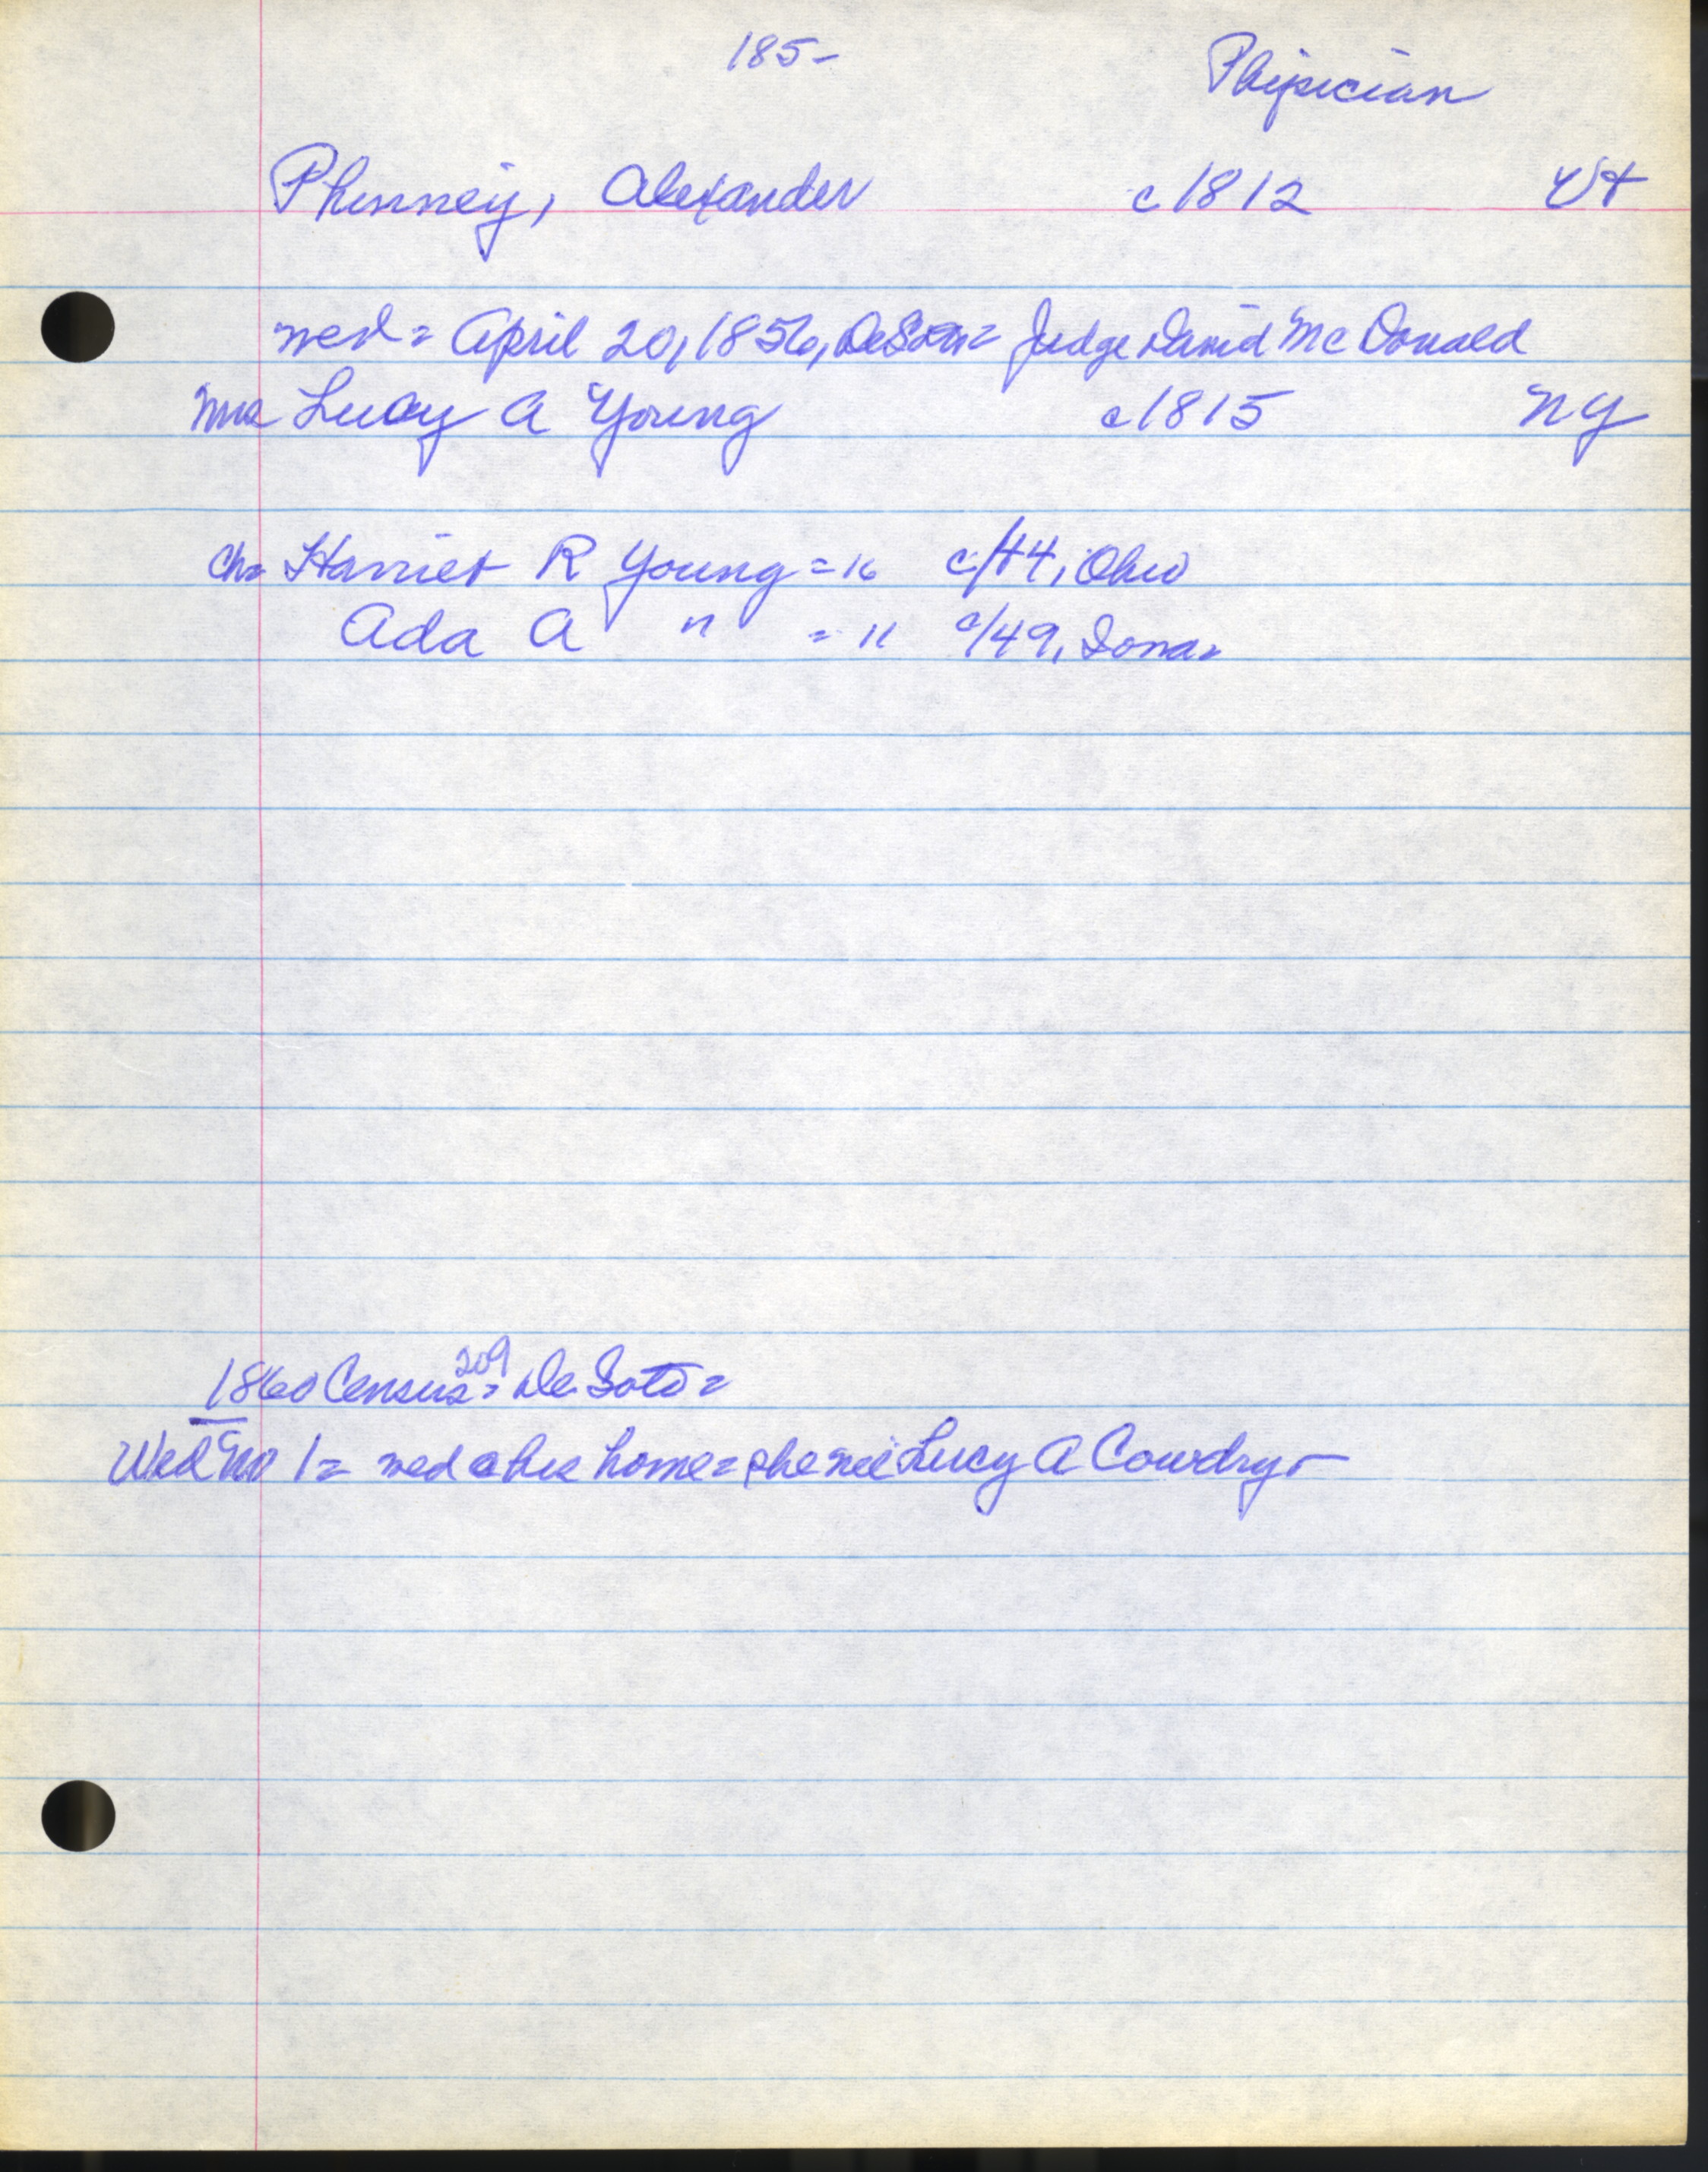 185-
Physician
Phinney, Alexander c1812 Vt
wed = April 20, 1856, DeSoto = Judge David McDonald
Mrs Lucy A Young c1815 NY
Ch= Harriet R Young = 16 c/44, Ohio
Ada A " = 11 c/49, Iowa-
1860 Census 209 = De Soto =
Wed no 1 = wed @ his home = she neé Lucy A Cowdry-